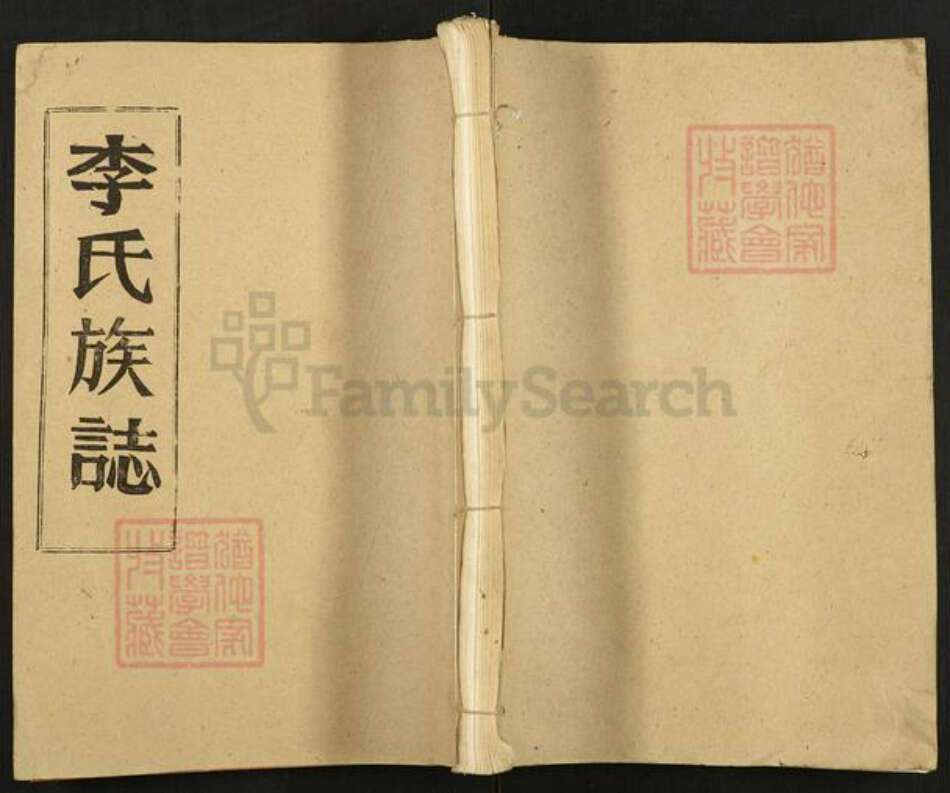 李氏族誌
猶他家
譜學會
特藏
FamilySearch
猶他家
譜學會
特藏